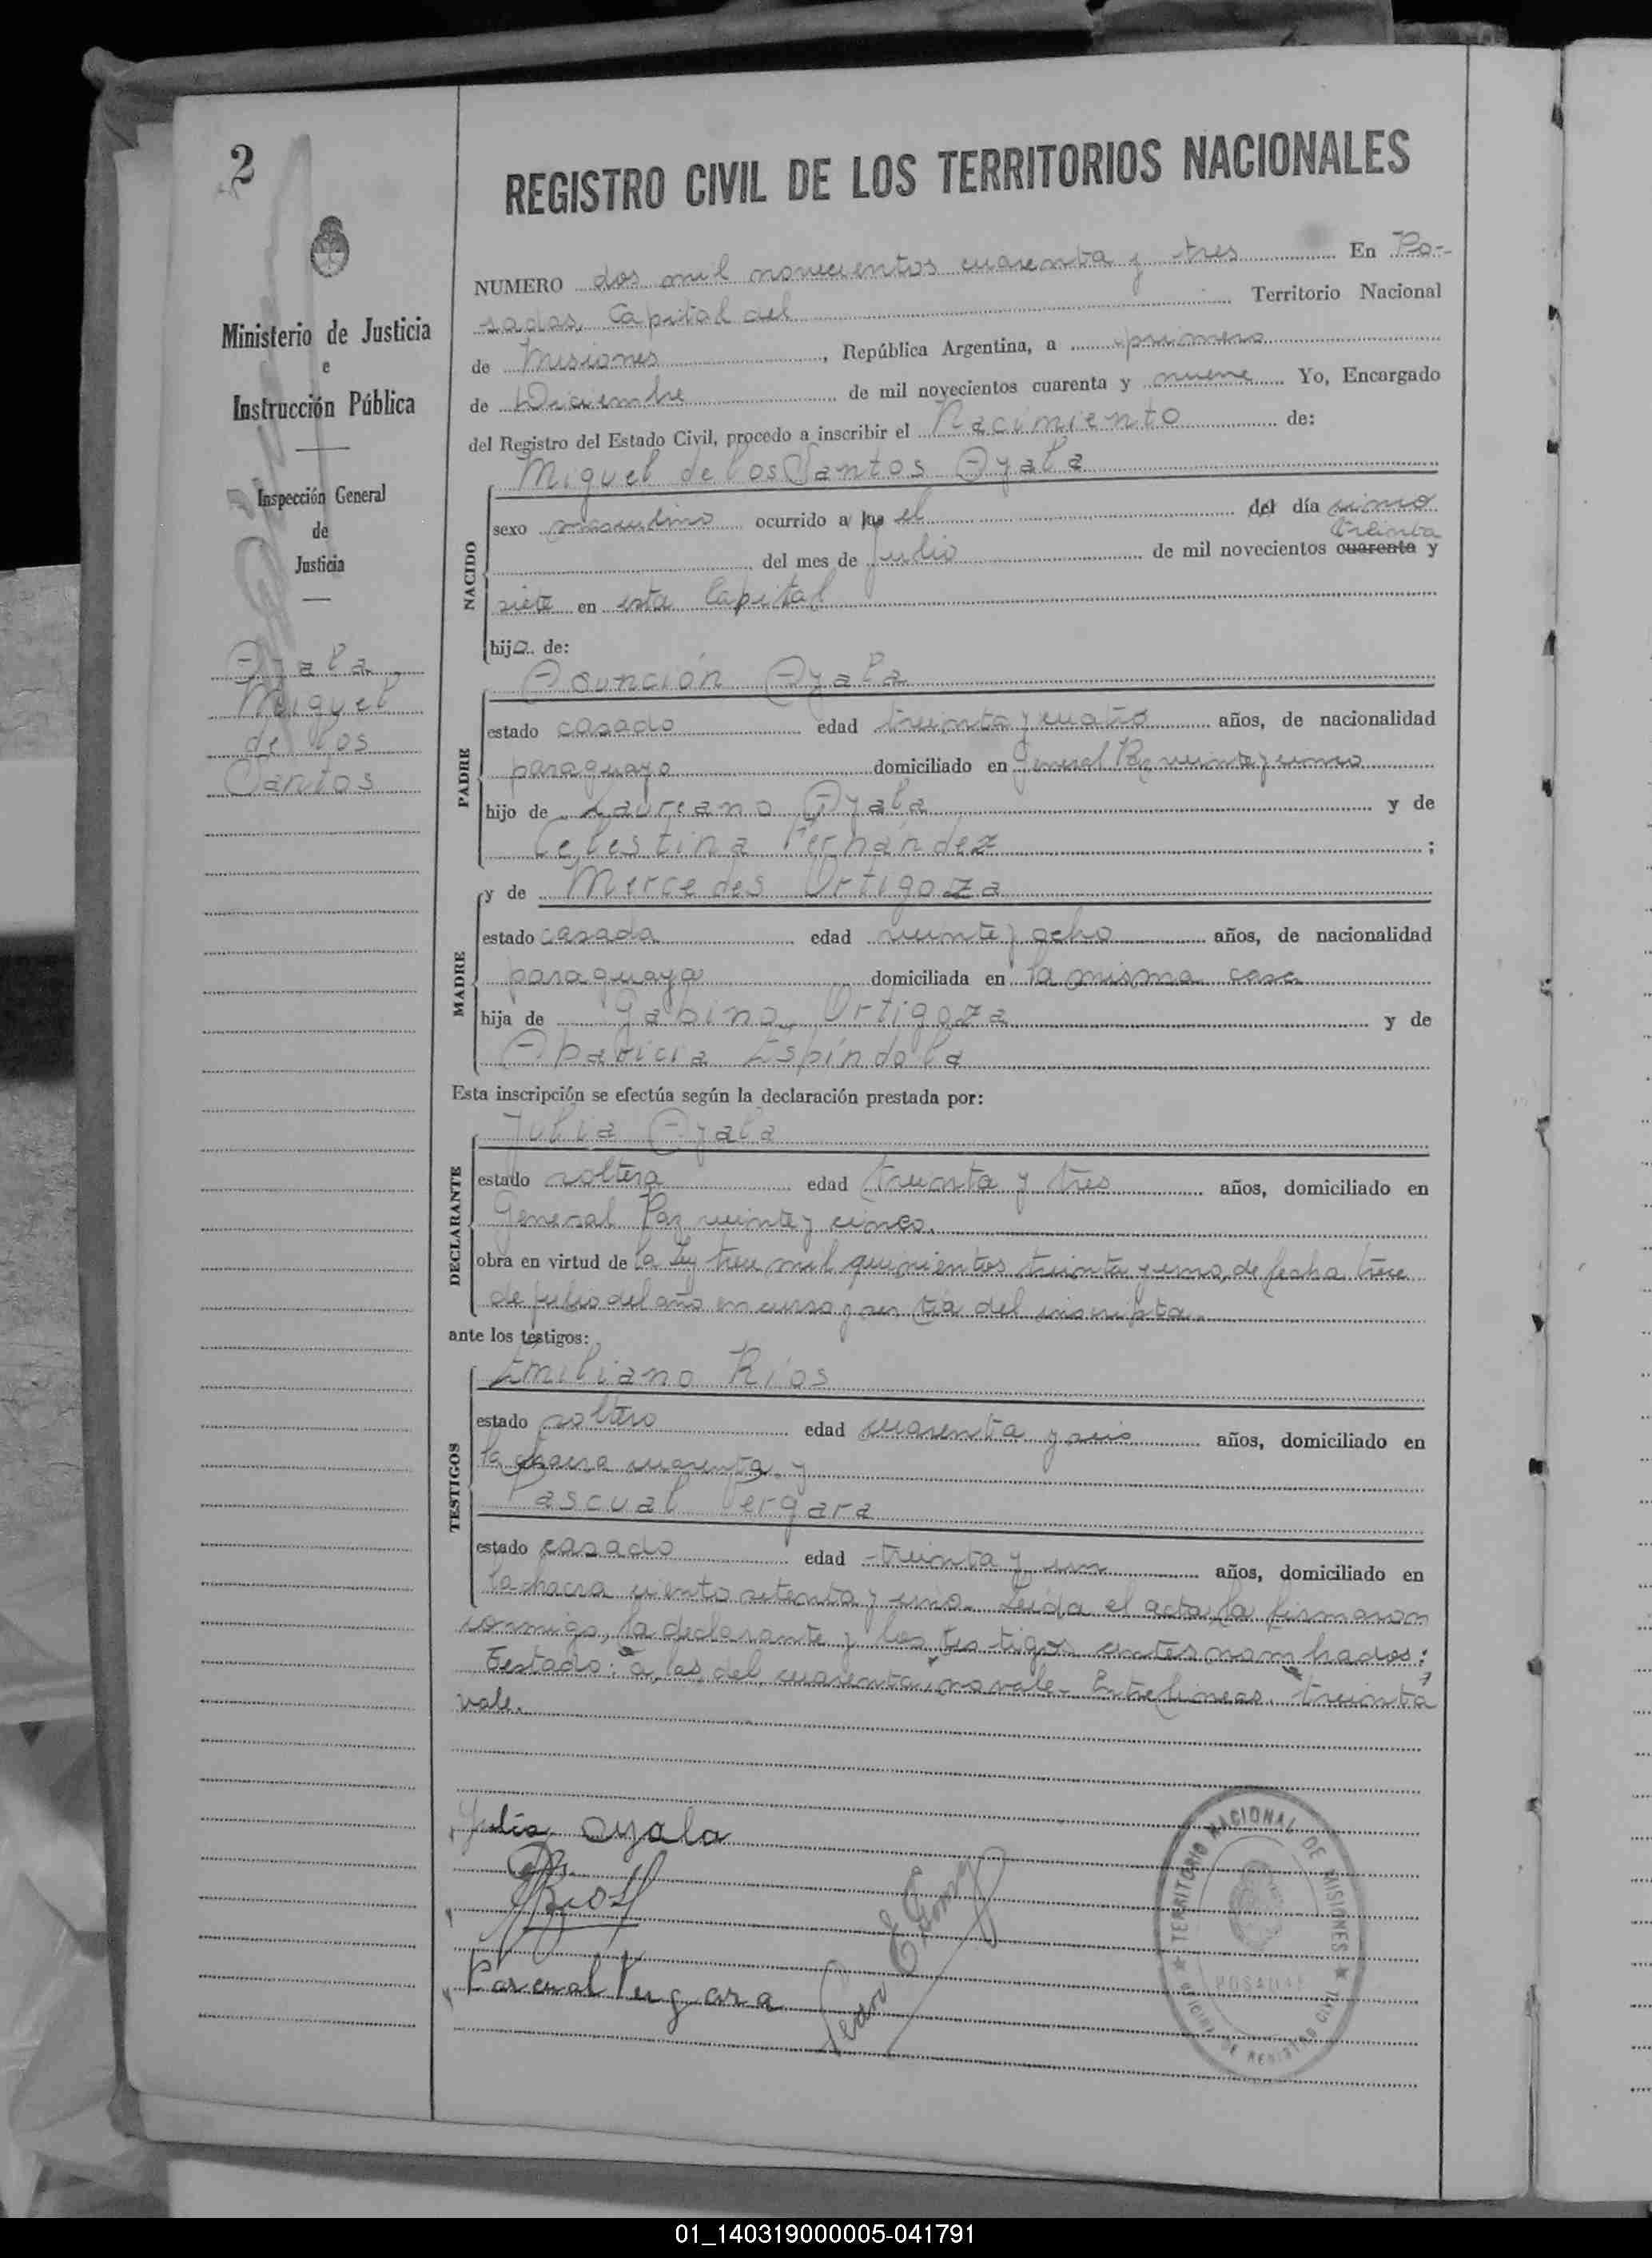 2
REGISTRO CIVIL DE LOS TERRITORIOS NACIONALES
Ministerio de Justicia
e
Instrucción Pública
Inspección General
de
Justicia
Ayala
Miguel
de los
Santos
NUMERO dos mil novecientos cuarenta y tres En Po-
sadas, Capital del Territorio Nacional
de Misiones, República Argentina, a primero
de Diciembre de mil novecientos cuarenta y nueve Yo, Encargado
del Registro del Estado Civil, procedo a inscribir el Nacimiento de:
Miguel de los Santos Ayala
NACIDO
sexo masculino ocurrido a las el del día
treinta
del mes de Julio de mil novecientos cuarenta y
siete en esta Capital
hijo de:
Asunción Ayala
PADRE
estado casado edad treinta y cuatro años, de nacionalidad
paraguayo domiciliado en General Paz veinte y cinco
hijo de Laureano Ayala y de
Celestina Fernández ;
y de Mercedes Ortigoza
MADRE
estado casada edad veinte y ocho años, de nacionalidad
paraguaya domiciliada en la misma casa
hija de Gabino Ortigoza y de
Aparicia Espíndola
Esta inscripción se efectúa según la declaración prestada por:
Julia Ayala
DECLARANTE
estado soltera edad treinta y tres años, domiciliado en
General Paz veinte y cinco.
obra en virtud de la ley trece mil quinientos treinta y uno, de fecha trece
de julio del año en curso y ser tía del inscripto.
ante los testigos:
Emiliano Ríos
TESTIGOS
estado soltero edad cuarenta y seis años, domiciliado en
la chacra cuarenta y
Pascual Vergara
estado casado edad treinta y un años, domiciliado en
la chacra ciento setenta y uno. Leída el acta la firmaron
conmigo, la declarante y los testigos antes nombrados:
Testado: a, las, del, cuarenta, no vale. Entre líneas: treinta
vale.
Julia Ayala
Ríos
Pascual Vergara
TERRITORIO NACIONAL DE MISIONES
POSADAS
OFICINA DE REGISTRO CIVIL
01_140319000005-041791